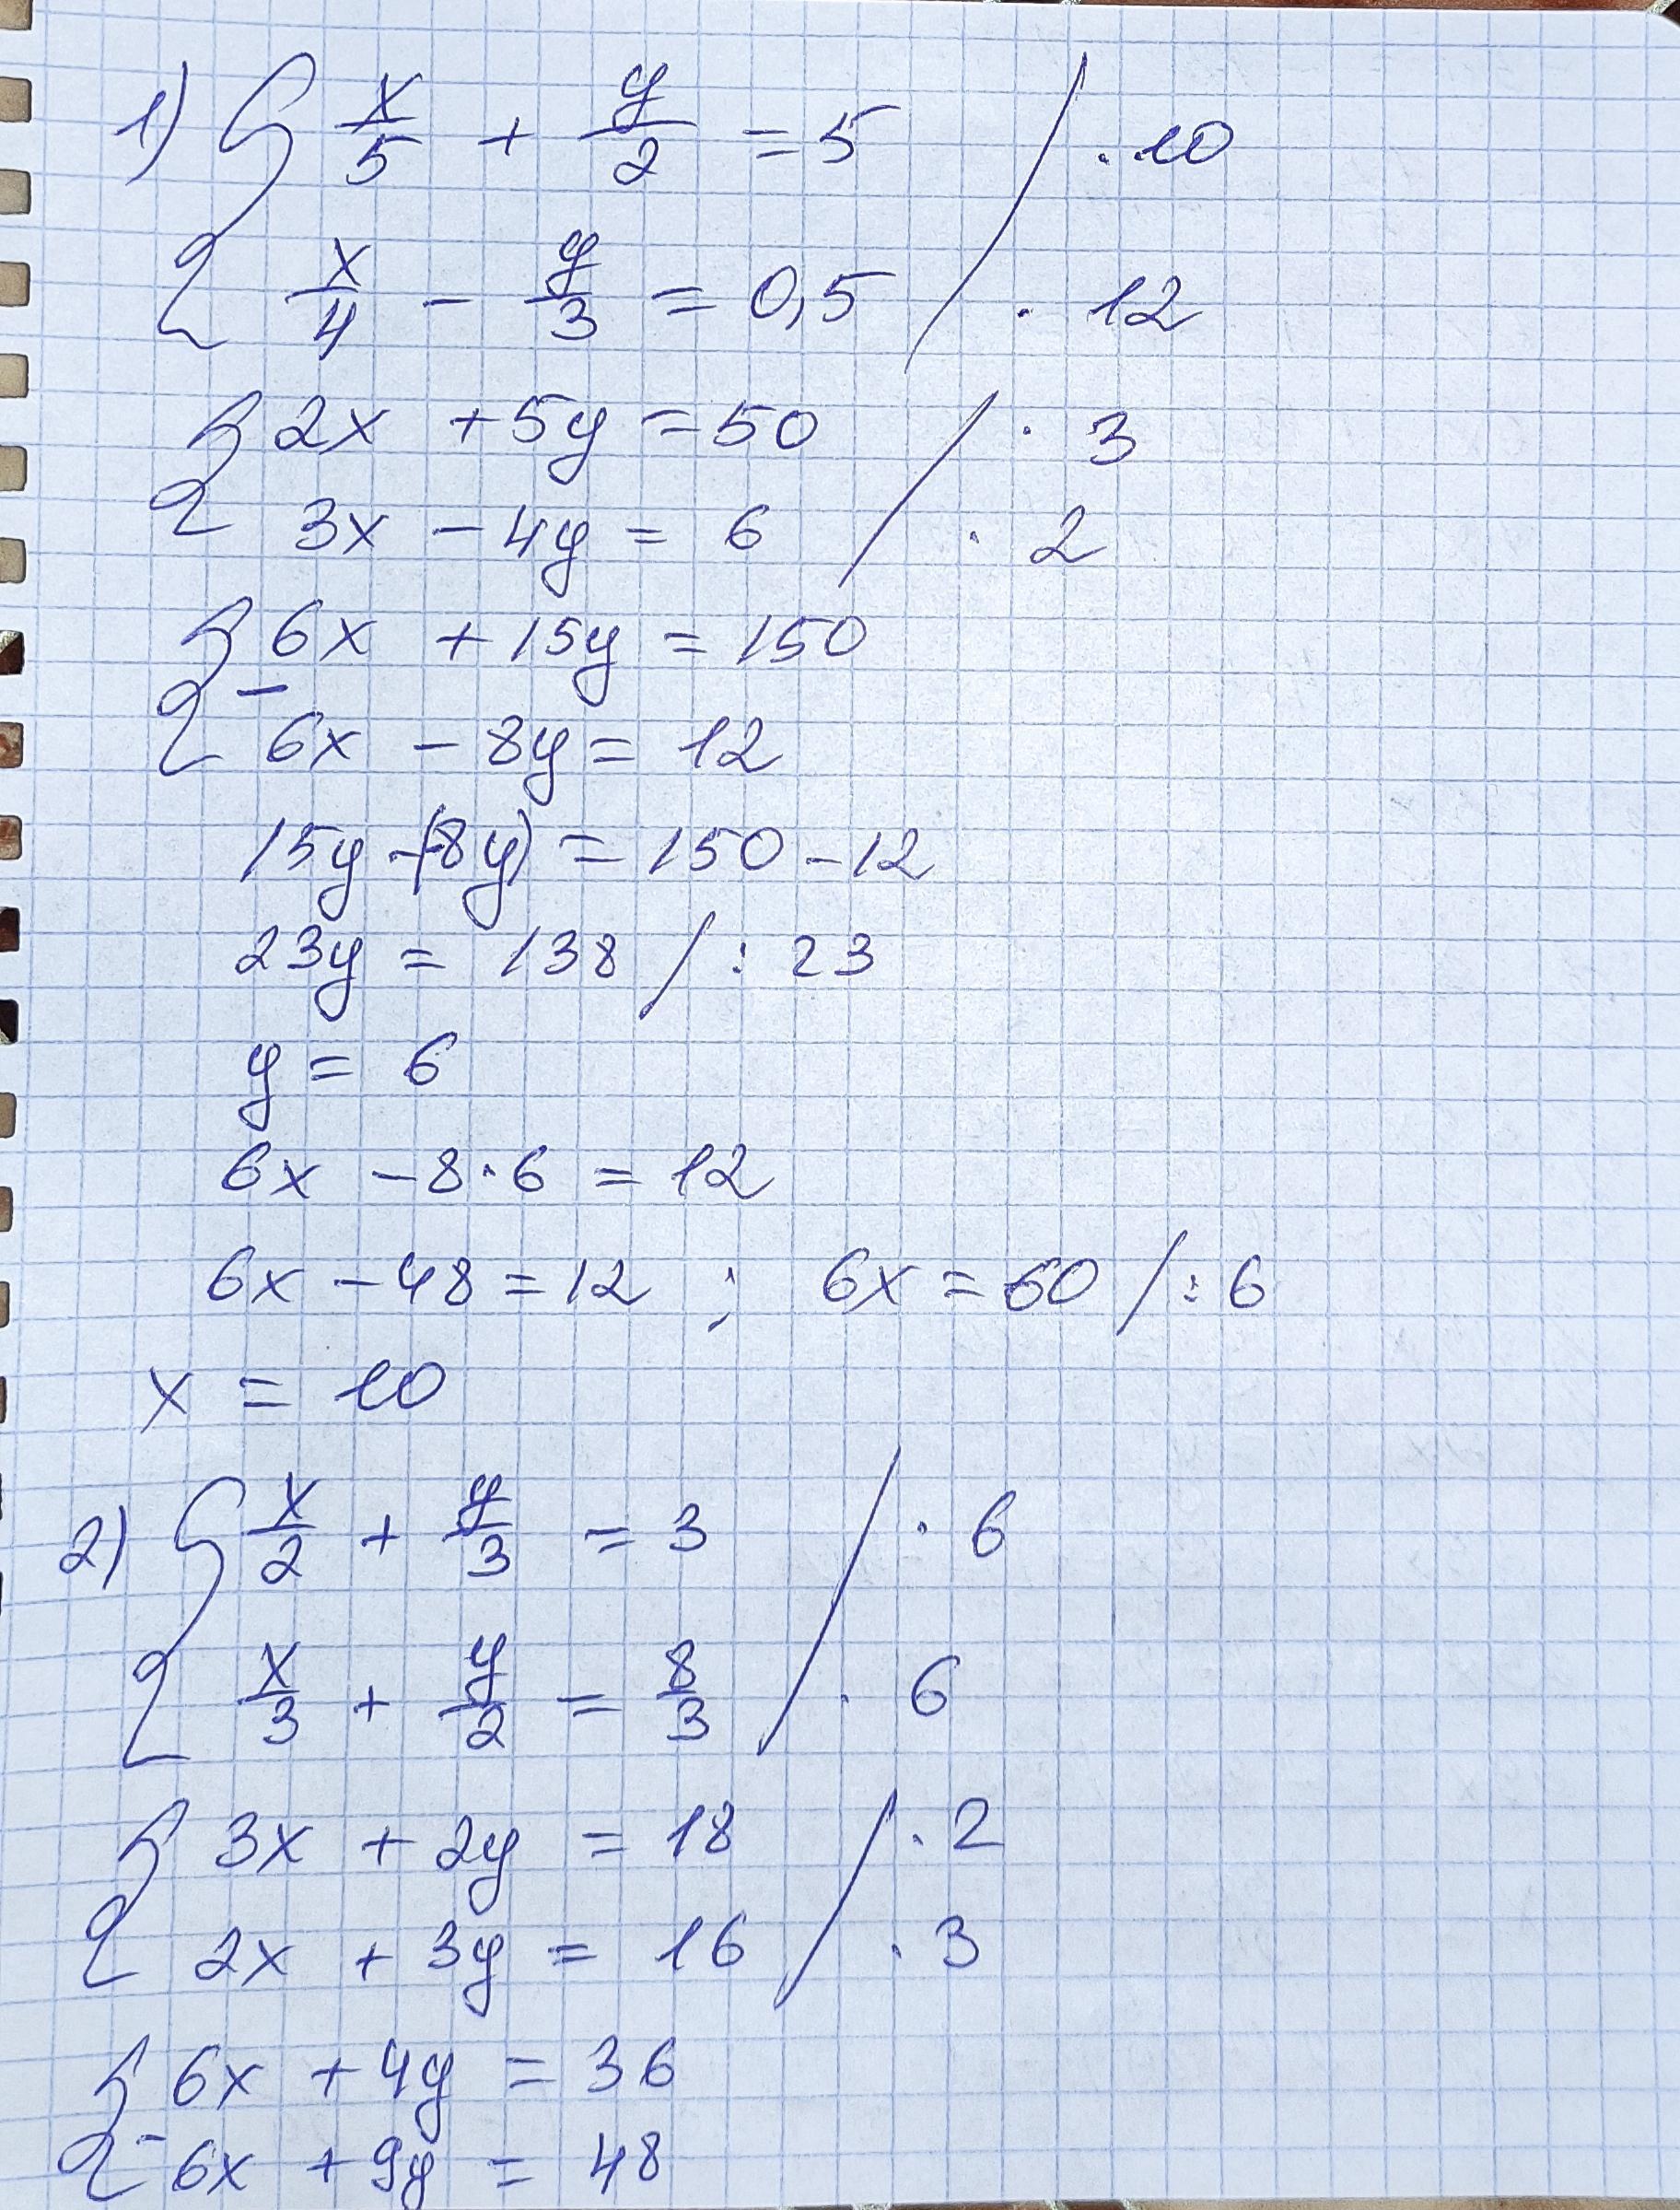 1) { x/5 + y/2 = 5 / · 10
{ x/4 - y/3 = 0,5 / · 12
{ 2x + 5y = 50 / · 3
{ 3x - 4y = 6 / · 2
{ 6x + 15y = 150
{ - 6x - 8y = 12
15y - (-8y) = 150 - 12
23y = 138 / : 23
y = 6
6x - 8 · 6 = 12
6x - 48 = 12 ; 6x = 60 / : 6
x = 10
2) { x/2 + y/3 = 3 / · 6
{ x/3 + y/2 = 8/3 / · 6
{ 3x + 2y = 18 / · 2
{ 2x + 3y = 16 / · 3
{ 6x + 4y = 36
{ - 6x + 9y = 48